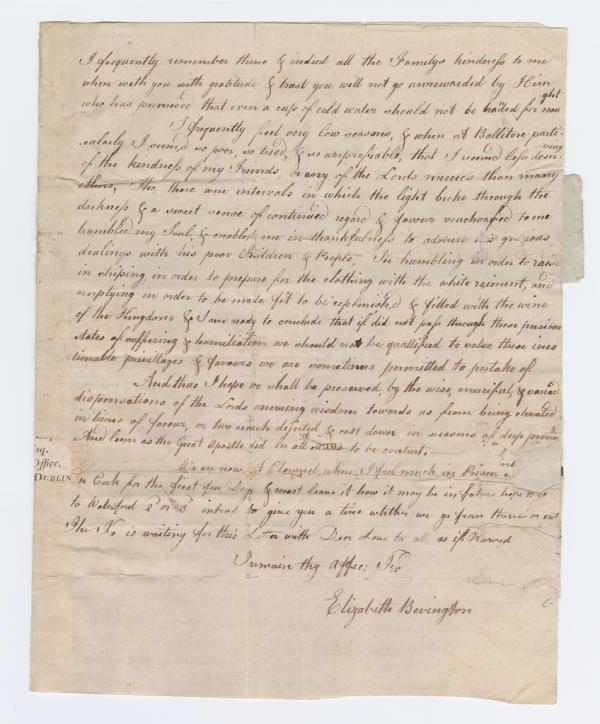 I frequently remember thine & indeed all the Familys kindness to me
when with you with gratitude & trust you will not go unrewarded by Him
who has promised that even a cup of cold water should not be handed for naught
I frequently feel very low seasons, & when at Ballitore parti-
cularly I seem,d so poor, so tried, & so unprofitable, that I seemd less deserving
of the kindness of my Friends, or any of the Lords mercies than many
others, tho, there were intervals in which the light broke through the
darkness & a sweet sense of continued regard & favour vouchsafed to me
humbled my Soul, & enabled me in thankfulness to admire his gracious
dealings with his poor Children & People. In humbling in order to raise
in striping in order to prepare for the clothing with the white raiment, and
emptying in order to be made fit to be replenish,d & filled with the wine
of the Kingdom & I am ready to conclude that if did not pass through these previous
states of suffering & humiliation we should not be quallified to value those ines
timable privillages & favours we are sometimes permitted to partake of
And thus I hope we shall be preserved, by the wise merciful, & varied
dispensations of the Lords unerring wisdom towards us from being elevated
in times of favour, or two much dejected & cast down in seasons of deep proving
And learn as the Great Apostle did in all to be content.
We are now at Clonmel, where I feel much in Prison
in Cork for the first few Days & must leave it how it may be in future hope to go
to Waterford 2d or 3d intend to give you a line whither we go from thence or not
The is waiting for this Letter with Dear Love to all as if Named
I remain thy affec: Frd
Elizabeth Bevington
Esq.
Office,
DUBLIN